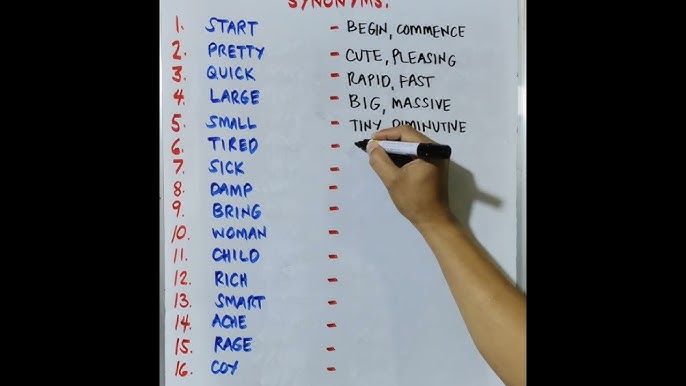 SYNONYMS.
1. START - BEGIN, COMMENCE
2. PRETTY - CUTE, PLEASING
3. QUICK - RAPID, FAST
4. LARGE - BIG, MASSIVE
5. SMALL - TINY, DIMINUTIVE
6. TIRED -
7. SICK -
8. DAMP -
9. BRING -
10. WOMAN -
11. CHILD -
12. RICH -
13. SMART -
14. ACHE -
15. RAGE -
16. COY -